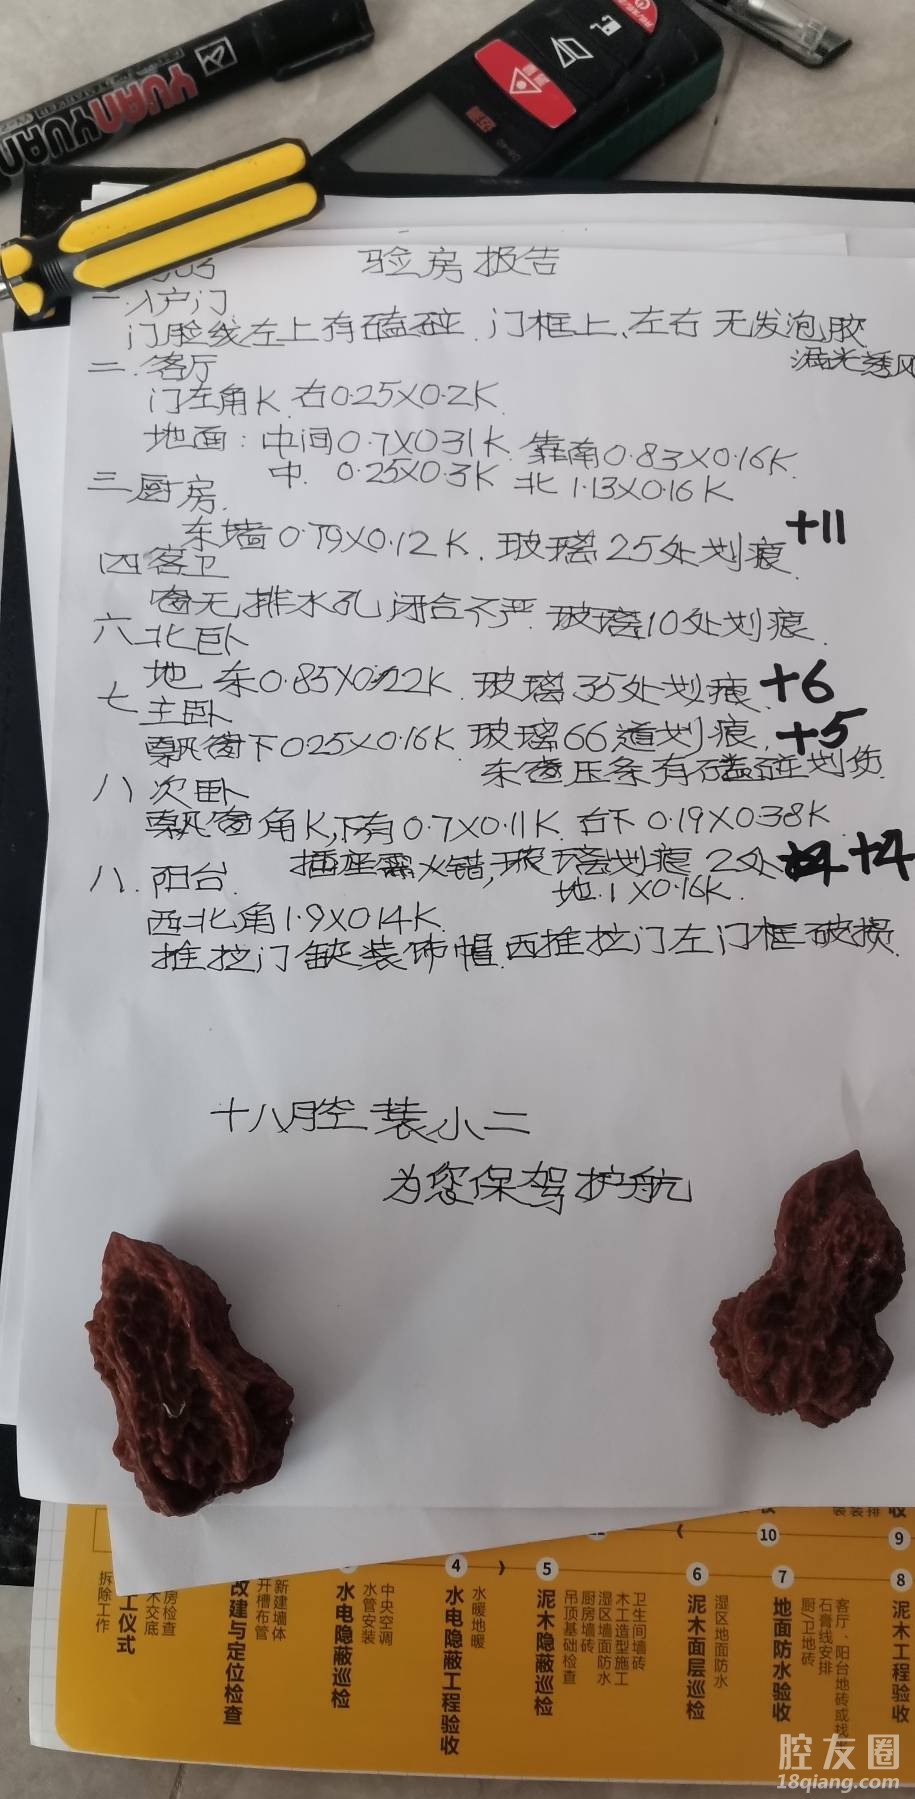 YUANYUAN
验房报告
一.入户门
门脸线左上有磕碰.门框上、左右无发泡胶
漏光透风
二.客厅
门左角K.右0.25X0.2K.
地面:中间0.7X0.31K.靠南0.83X0.16K.
中.0.25X0.3K 北1.13X0.16K
三.厨房.
东墙0.79X0.12K.玻璃25处划痕. +11
四客卫
窗无排水孔,闭合不严.玻璃10处划痕.
六北卧
地.东0.85X0.22K.玻璃35处划痕. +6
七主卧
飘窗下0.25X0.16K.玻璃66道划痕. +5
东窗压条有磕碰划伤.
八次卧
飘窗角K,下有0.7X0.11K.右下0.19X0.38K
插座需火错,玻璃划痕2处 +4
八.阳台.
地.1X0.16K.
西北角1.9X0.14K.
推拉门缺装饰帽.西推拉门左门框破损.
十八腔装小二
为您保驾护航
工仪式
拆除工作
改建与定位检查
新建墙体
开槽布管
水电隐蔽巡检
中央空调
水管安装
4
水电隐蔽工程验收
水暖地暖
5
泥木隐蔽巡检
卫生间墙砖
木工造型施工
湿区墙面防水
厨房墙砖
吊顶基础检查
6
泥木面层巡检
湿区地面防水
7
地面防水验收
石膏线安装
厨/卫地砖
8
泥木工程验收
9
10
腔友圈
18qiang.com